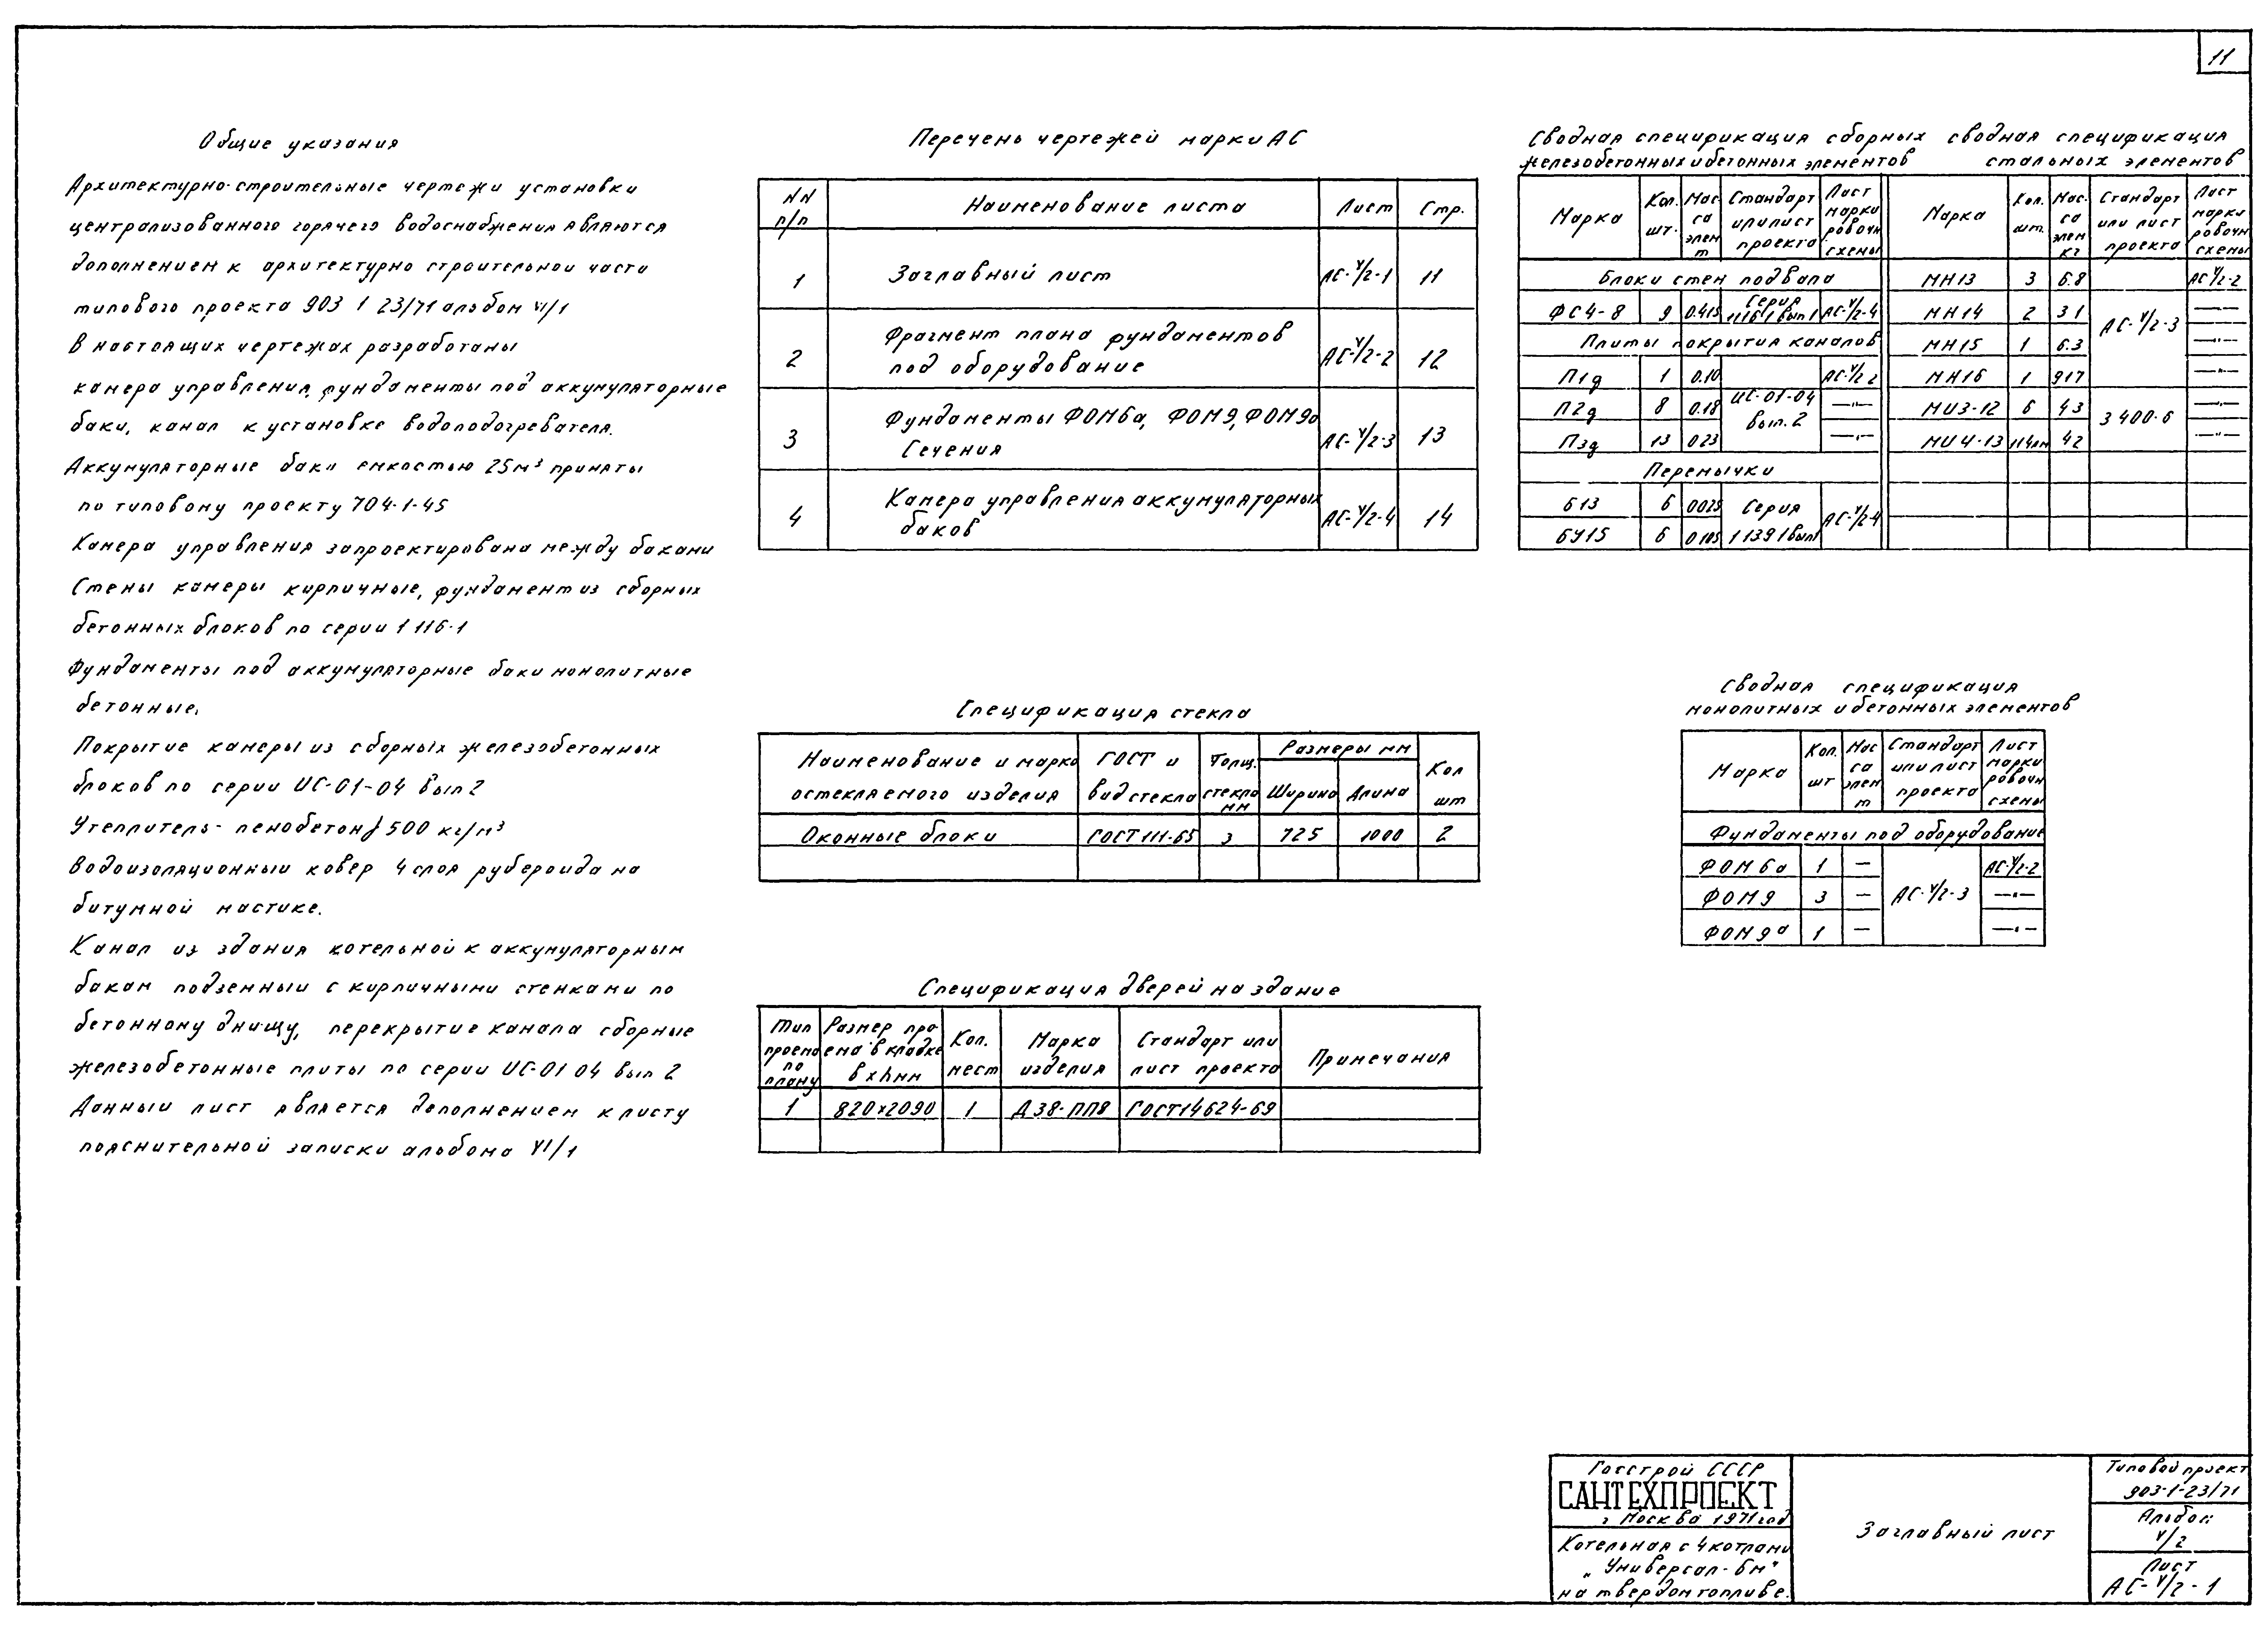 11
Общие указания
Архитектурно-строительные чертежи установки
централизованного горячего водоснабжения являются
дополнением к архитектурно строительной части
типового проекта 903 1 23/71 альбом VI/1
В настоящих чертежах разработаны
камера управления, фундаменты под аккумуляторные
баки, канал к установке водоподогревателя.
Аккумуляторные баки емкостью 25м³ приняты
по типовому проекту 704-1-45
Камера управления запроектирована между баками
Стены камеры кирпичные, фундамент из сборных
бетонных блоков по серии 1 116-1
Фундаменты под аккумуляторные баки монолитные
бетонные.
Покрытие камеры из сборных железобетонных
блоков по серии ИС-01-04 вып 2
Утеплитель - пенобетон γ 500 кг/м³
Водоизоляционный ковер 4 слоя рубероида на
битумной мастике.
Канал из здания котельной к аккумуляторным
бакам подземный с кирпичными стенками по
бетонному днищу, перекрытие канала сборные
железобетонные плиты по серии ИС-01 04 вып 2
Данный лист является дополнением к листу
пояснительной записки альбома VI/1
Перечень чертежей марки АС
NN п/п Наименование листа Лист Стр.
1 Заглавный лист АС-V/2-1 11
2 Фрагмент плана фундаментов под оборудование АС-V/2-2 12
3 Фундаменты ФОМ6а, ФОМ9, ФОМ9а Сечения АС-V/2-3 13
4 Камера управления аккумуляторных баков АС-V/2-4 14
Спецификация стекла
Наименование и марка остекляемого изделия ГОСТ и вид стекла Толщ. стекла мм Размеры мм Ширина Длина Кол шт
Оконные блоки ГОСТ 111-65 3 725 1000 2
Спецификация дверей на здание
Тип проема по плану Размер проема в кладке в х h мм Кол. мест Марка изделия Стандарт или лист проекта Примечания
1 820х2090 1 Д38-ПП8 ГОСТ14624-69
Сводная спецификация сборных
железобетонных и бетонных элементов
Марка Кол. шт. Масса элем т Стандарт или лист проекта Лист маркировочн схемы
Блоки стен подвала
ФС4-8 9 0.415 Серия 1 116 1 вып 1 АС-V/2-4
Плиты покрытия каналов
П1д 1 0.10 ИС-01-04 вып. 2 АС-V/2 2
П2д 8 0.18 —"—
П3д 13 0 23 —"—
Перемычки
Б13 6 0025 Серия 1 139 1 вып1 АС-V/2-4
БУ15 6 0 105
сводная спецификация
стальных элементов
Марка Кол. шт. Масса элем кг Стандарт или лист проекта Лист маркировочн схемы
МН13 3 6.8 АС-V/2-3 АС-V/2-2
МН14 2 3 1 —"—
МН15 1 6.3 —"—
МН16 1 917 —"—
МИ3-12 6 4 3 3 400-6 —"—
МИ4-13 114пм 4 2 —"—
Сводная спецификация
монолитных и бетонных элементов
Марка Кол. шт Масса элем т Стандарт или лист проекта Лист маркировочн схемы
Фундаменты под оборудование
ФОМ 6а 1 — АС-V/2-3 АС-V/2-2
ФОМ9 3 — —"—
ФОМ9а 1 — —"—
Госстрой СССР
САНТЕХПРОЕКТ
г Москва 1971 год
Котельная с 4 котлами
„Универсал-6м"
на твердом топливе.
Заглавный лист
Типовой проект
903-1-23/71
Альбом
V/2
Лист
АС-V/2-1